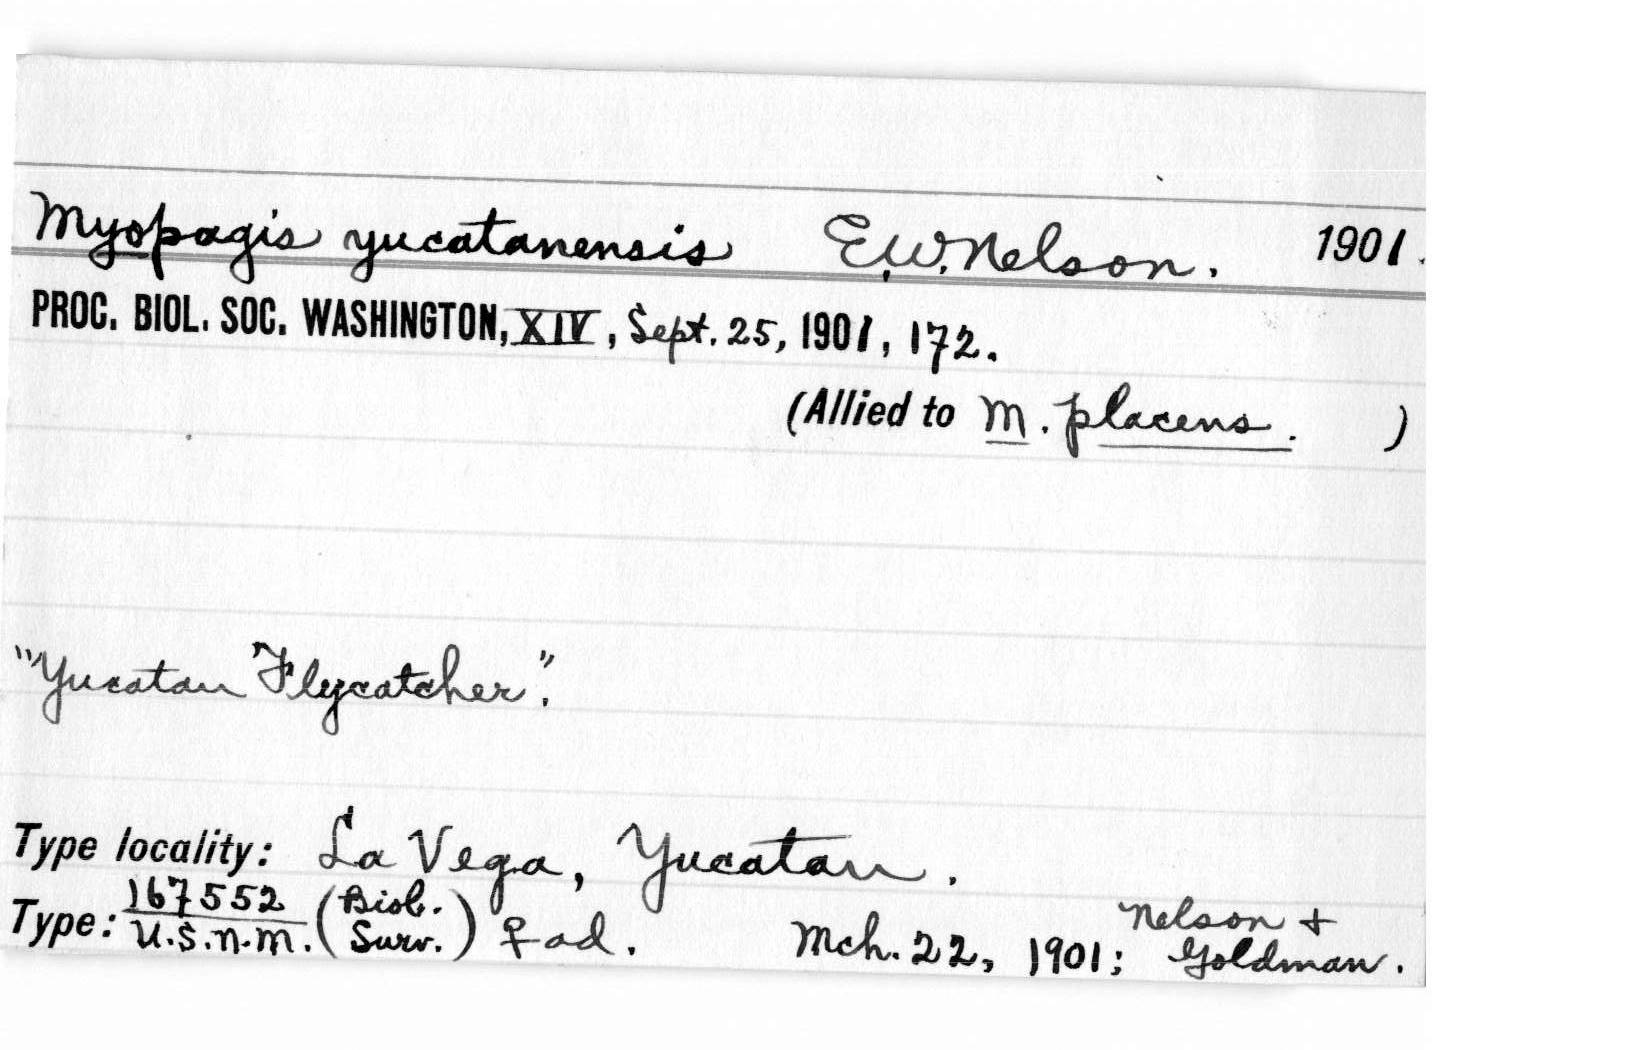 Myopagis yucatanensis E.W. Nelson. 1901.
PROC. BIOL. SOC. WASHINGTON, XIV, Sept. 25, 1901, 172.
(Allied to M. placens. )
"Yucatan Flycatcher".
Type locality: La Vega, Yucatan.
Type: 167552 / U.S.N.M. (Biol. Surv.) ♀ ad. Mch. 22, 1901; Nelson + Goldman.